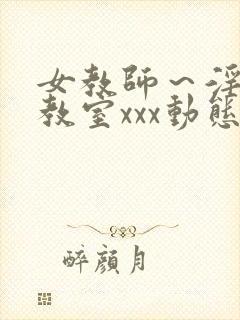 女教師~淫
教室xxx動態
醉顏月